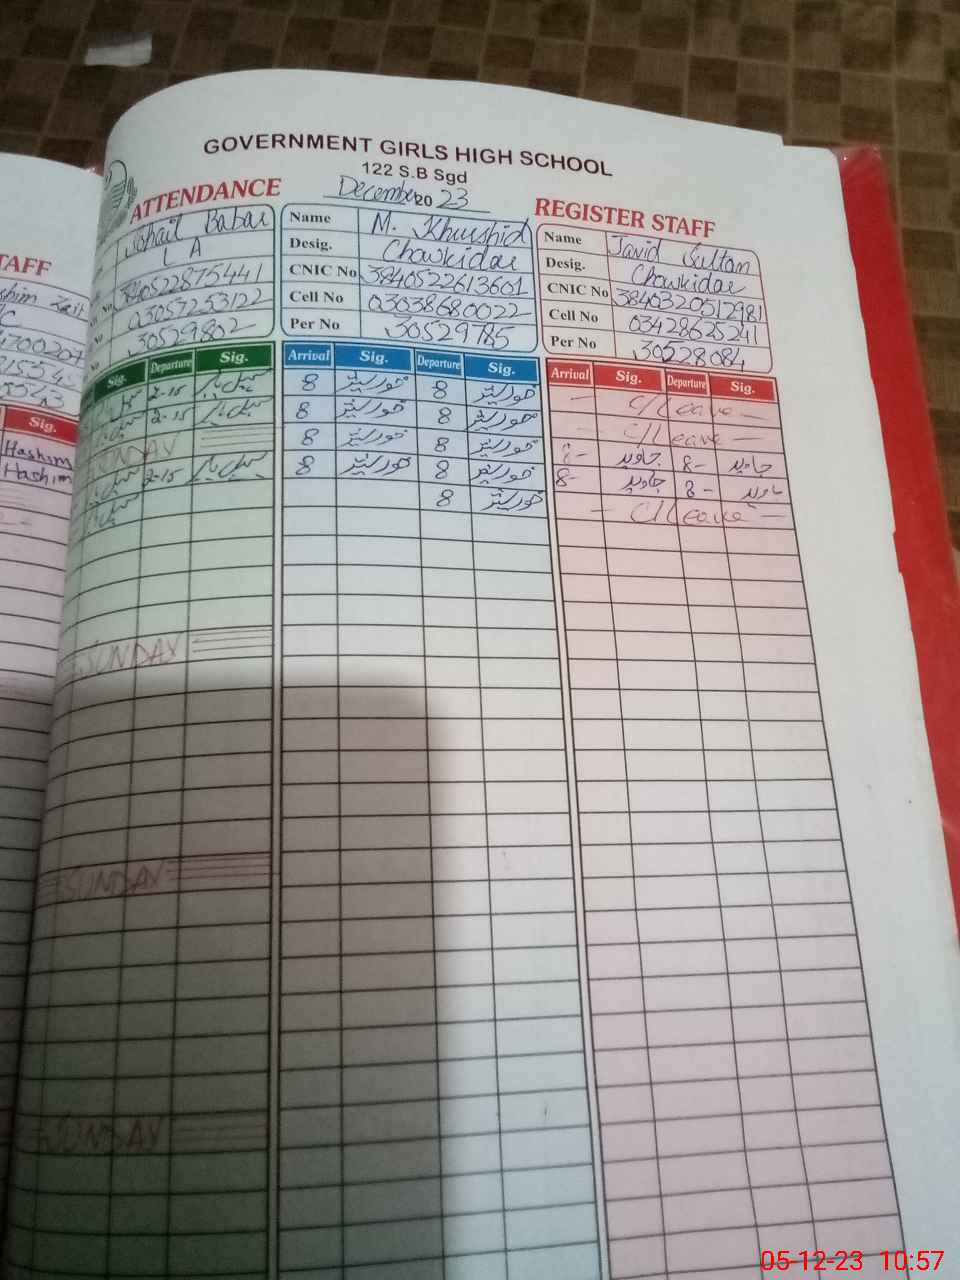 GOVERNMENT GIRLS HIGH SCHOOL
122 S.B Sgd
ATTENDANCE December 20 23 REGISTER STAFF
TAFF
Sohail Babar
L A
3840522875441
03057253122
30529802
Sig. Departure Sig.
2-15 سہیل بابر
2-15 سہیل بابر
SUNDAY
2-15 سہیل بابر
SUNDAY
SUNDAY
SUNDAY
Name M. Khurshid
Desig. Chowkidar
CNIC No 3840522613601
Cell No 03038680022
Per No 30529785
Arrival Sig. Departure Sig.
8 خورشید 8 خورشید
8 خورشید 8 خورشید
8 خورشید 8 خورشید
8 خورشید 8 خورشید
8 خورشید
Name Javid Sultan
Desig. Chowkidar
CNIC No 3840320512981
Cell No 03428625241
Per No 30528084
Arrival Sig. Departure Sig.
— C/Leave —
— C/Leave —
8- جاوید 8- جاوید
8- جاوید 8- جاوید
— C/Leave —
Sig.
Hashim
Hashim
05-12-23 10:57